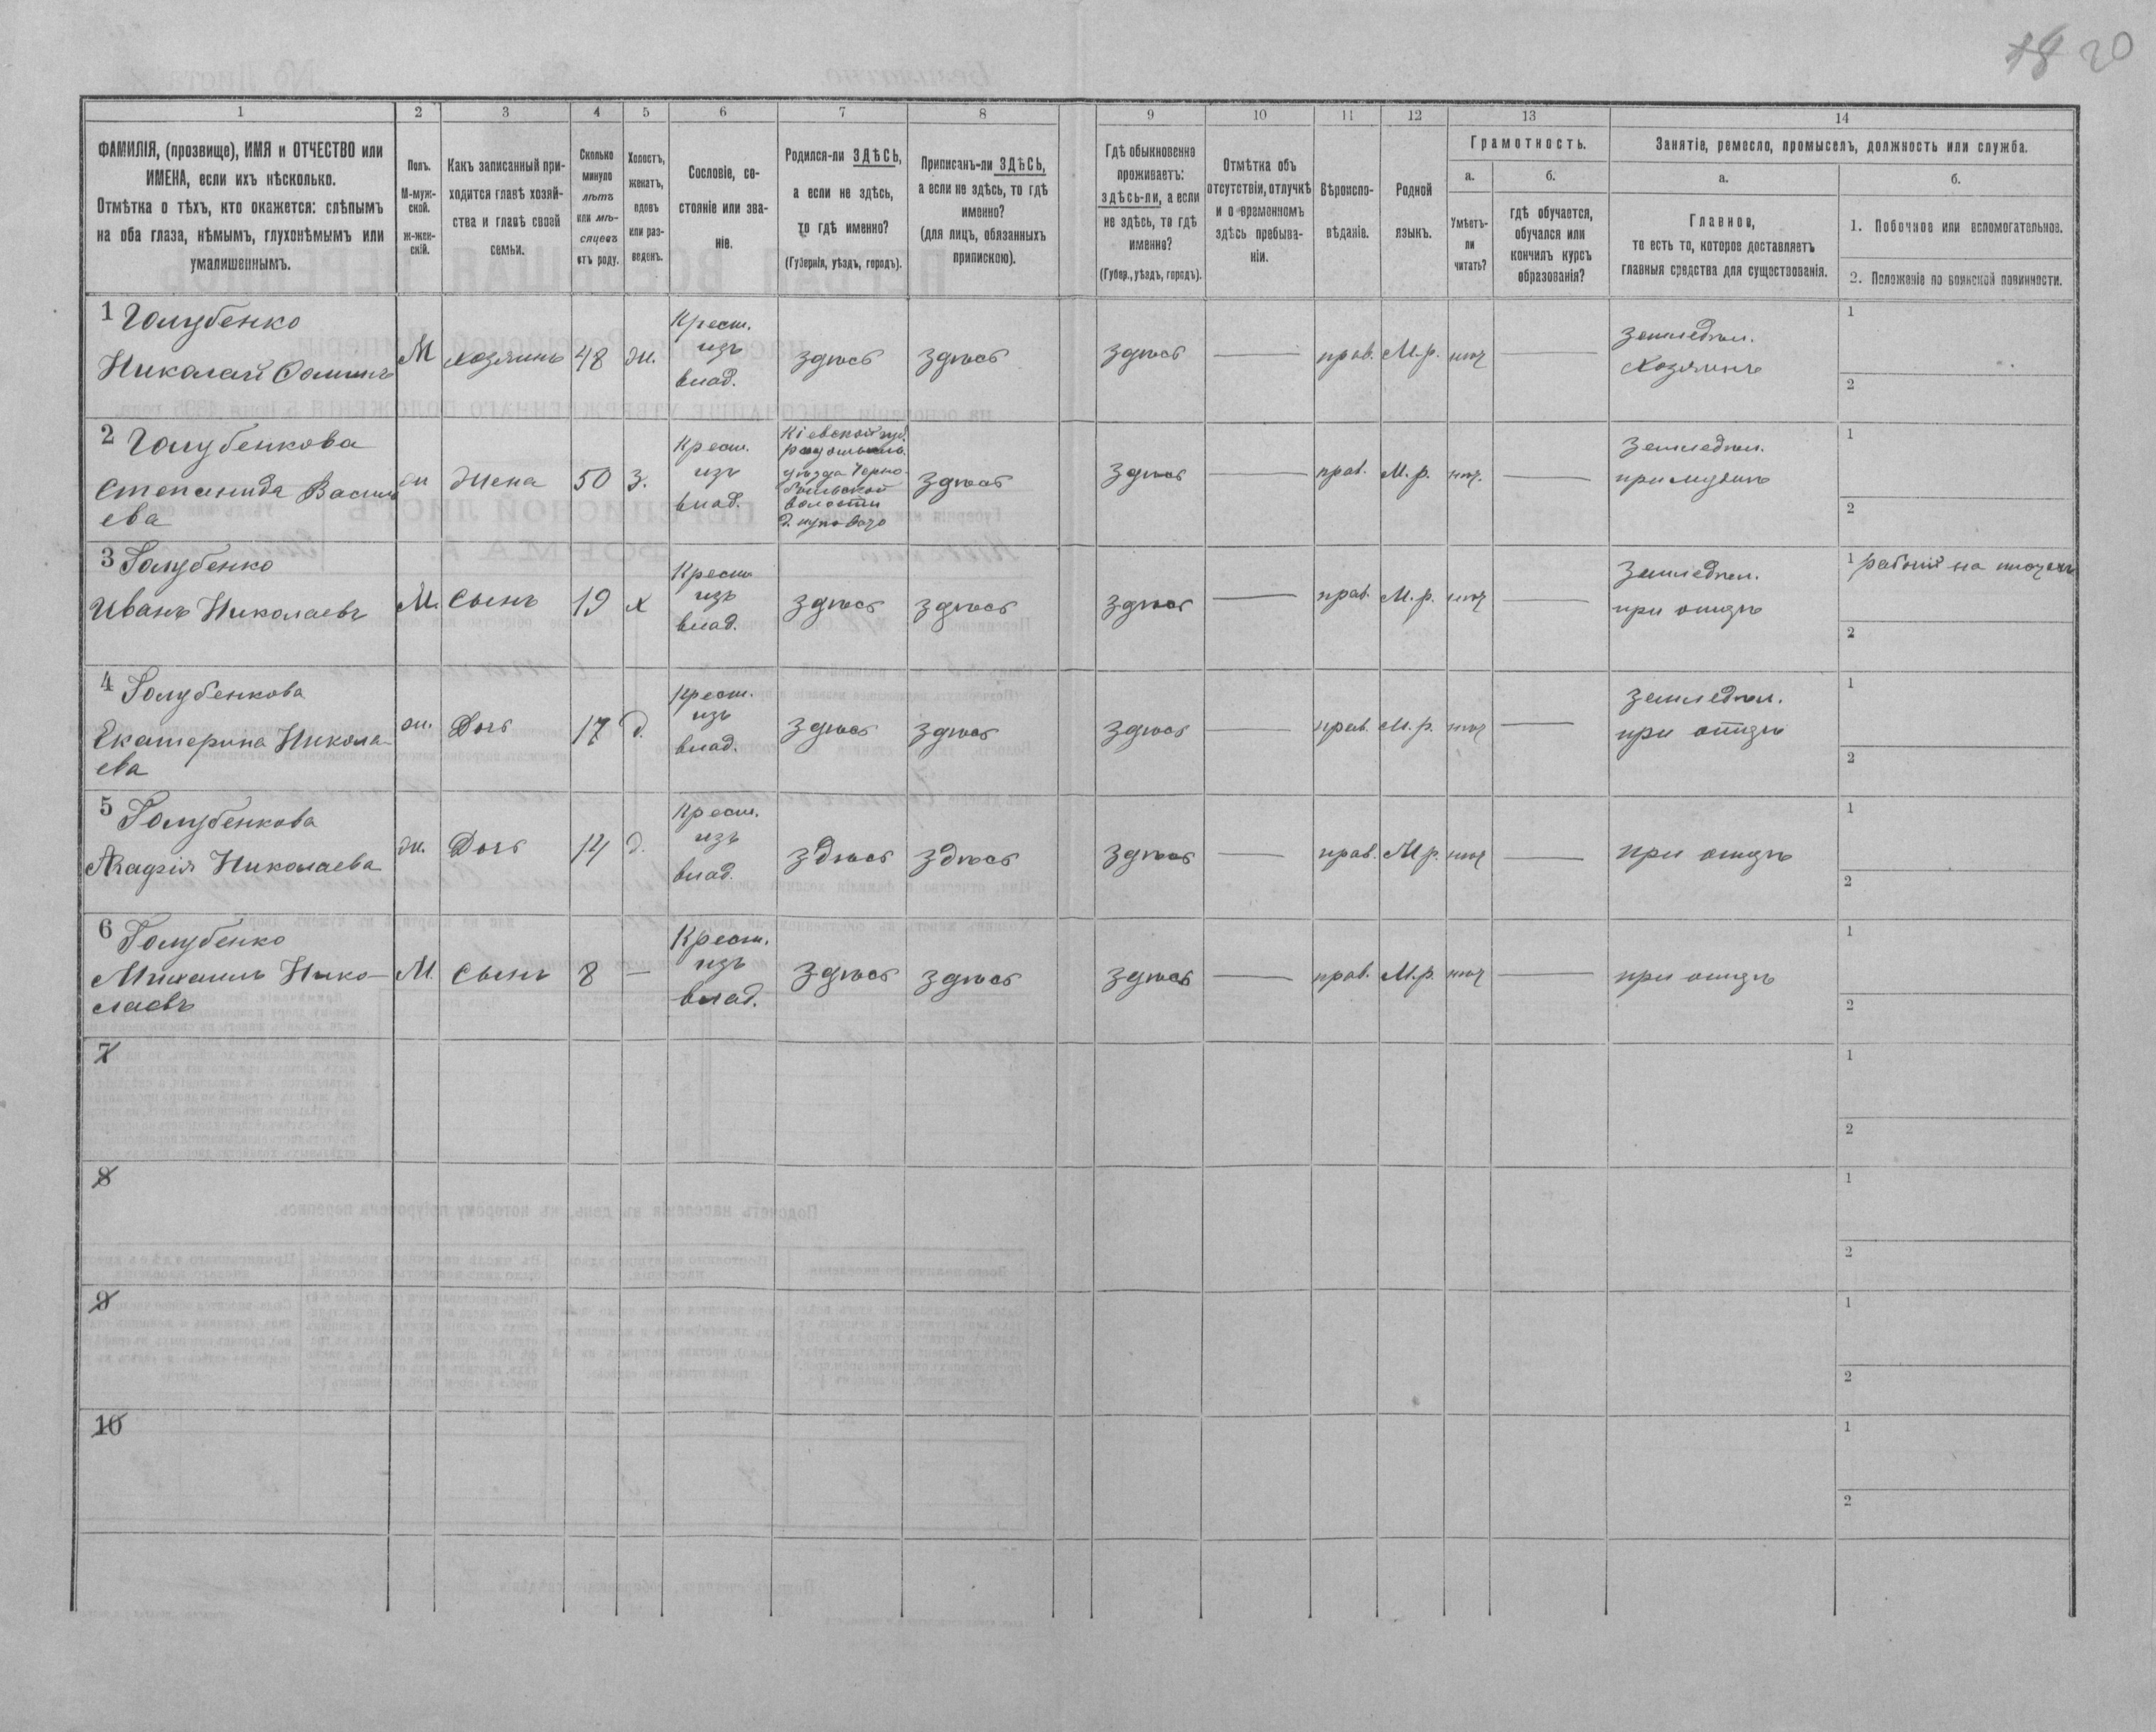 18 20
1 2 3 4 5 6 7 8 9 10 11 12 13 14
ФАМИЛІЯ, (прозвище), ИМЯ и ОТЧЕСТВО или
ИМЕНА, если ихъ нѣсколько.
Отмѣтка о тѣхъ, кто окажется: слѣпымъ
на оба глаза, нѣмымъ, глухонѣмымъ или
умалишеннымъ.
Полъ.
М-муж-
ской.
Ж-жен-
скій.
Какъ записанный при-
ходится главѣ хозяй-
ства и главѣ своей
семьи.
Сколько
минуло
лѣтъ
или мѣ-
сяцевъ
отъ роду.
Холостъ,
женатъ,
вдовъ
или раз-
веденъ.
Сословіе, со-
стояніе или зва-
ніе.
Родился-ли ЗДѢСЬ,
а если не здѣсь,
то гдѣ именно?
(Губернія, уѣздъ, городъ).
Приписанъ-ли ЗДѢСЬ,
а если не здѣсь, то гдѣ
именно?
(для лицъ, обязанныхъ
припискою).
Гдѣ обыкновенно
проживаетъ:
здѣсь-ли, а если
не здѣсь, то гдѣ
именно?
(Губер., уѣздъ, городъ).
Отмѣтка объ
отсутствіи, отлучкѣ
и о временномъ
здѣсь пребыва-
ніи.
Вѣроиспо-
вѣданіе.
Родной
языкъ.
Грамотность.
а.
Умѣетъ-
ли
читать?
б.
гдѣ обучается,
обучался или
кончилъ курсъ
образованія?
Занятіе, ремесло, промыселъ, должность или служба.
а.
Главное,
то есть то, которое доставляетъ
главныя средства для существованія.
б.
1. Побочное или вспомогательное.
2. Положеніе по воинской повинности.
1 Голубенко
Николай
М хозяинъ 48 ж.
Крест.
изъ
влад.
здѣсь здѣсь здѣсь — прав. М.р. нѣт —
земледѣл.
Хозяинъ
1
2
2 Голубенкова
Степанида Васил
ева
ж жена 50 з.
Крест.
изъ
влад.
Кіевской губ.
уѣзда Черно-
быльской
волости
здѣсь здѣсь — прав. М.р. нѣт. —
Земледѣл.
при мужѣ
1
2
3 Голубенко
Иванъ Николаевъ
М. Сынъ 19 х
Крест
изъ
влад.
здѣсь здѣсь здѣсь — прав. М.р. нѣт —
Земледѣл.
при отцѣ
1 рабочій на
2
4 Голубенкова
Екатерина Никола-
ева
ж. Дочь 17 д.
Крест.
изъ
влад.
здѣсь здѣсь здѣсь — прав. М.р. нѣт —
Земледѣл.
при отцѣ
1
2
5 Голубенкова
Николаева
ж. Дочь 14 д.
Крест.
изъ
влад.
здѣсь здѣсь здѣсь — прав. М.р. нѣт —
при отцѣ
1
2
6 Голубенко
Михаилъ Нико-
лаевъ
М. Сынъ 8 —
Крест.
изъ
влад.
здѣсь здѣсь здѣсь — прав. М.р. нѣт —
при отцѣ
1
2
7
1
2
8
1
2
9
1
2
10
1
2